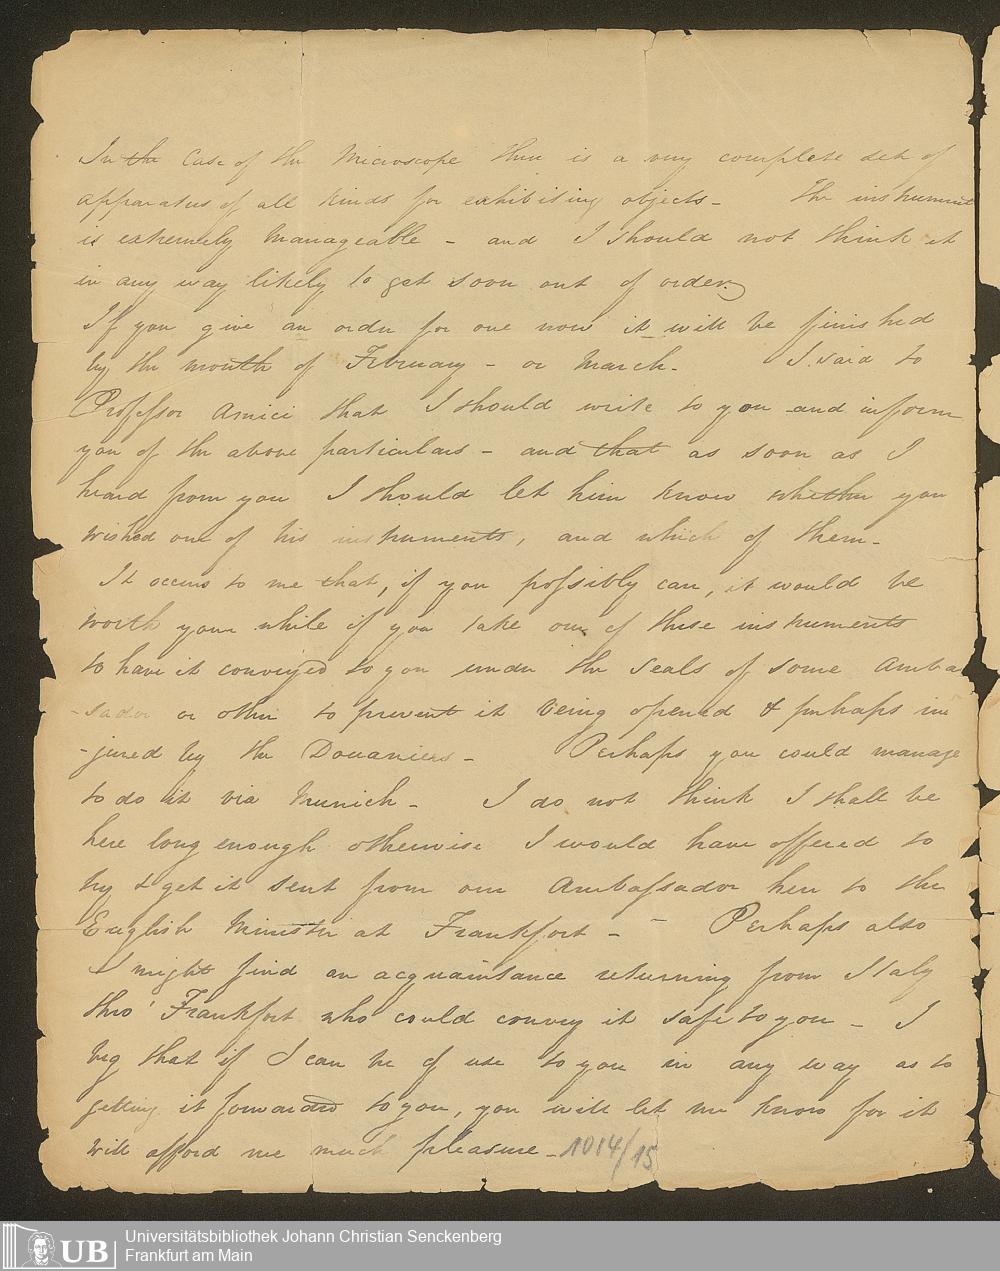 In the Case of the Microscope there is a very complete set of
apparatus of all kinds for exhibiting objects - The instrument
is extremely manageable - and I should not think it
in any way likely to get soon out of order
If you give an order for one now it will be finished
by the month of February - or March. I said to
Professor Amici that I should write to you and inform
you of the above particulars - and that as soon as I
heard from you I should let him know whether you
wished one of his instruments, and which of them.
It occurs to me that, if you possibly can, it would be
worth your while if you take one of these instruments
to have it conveyed to you under the seals of some Ambas
-sador or other to prevent it being opened & perhaps in
-jured by the Douaniers - Perhaps you could manage
to do it via Munich - I do not think I shall be
here long enough otherwise I would have offered to
try to get it sent from our Ambassador here to the
English Minister at Frankfort - - Perhaps also
I might find an acquaintance returning from Italy
thro' Frankfort who could convey it safe to you - I
beg that if I can be of use to you in any way as to
getting it forwarded to you, you will let me know for it
will afford me much pleasure - 1014/15
UB Universitätsbibliothek Johann Christian Senckenberg
Frankfurt am Main